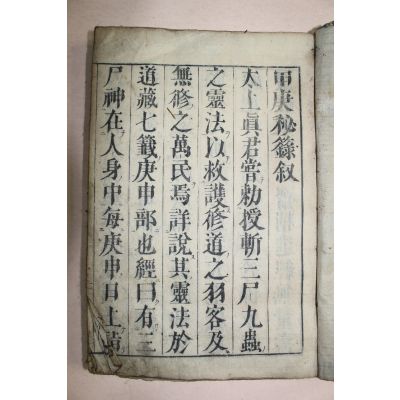 甲庚秘籙敘
太上眞君嘗勅授斬三尸九蟲
之靈法以救護修道之羽客及
無修之萬民焉詳說其靈法於
道藏七籤庚申部也經曰有三
尸神在人身中每庚申日上詣